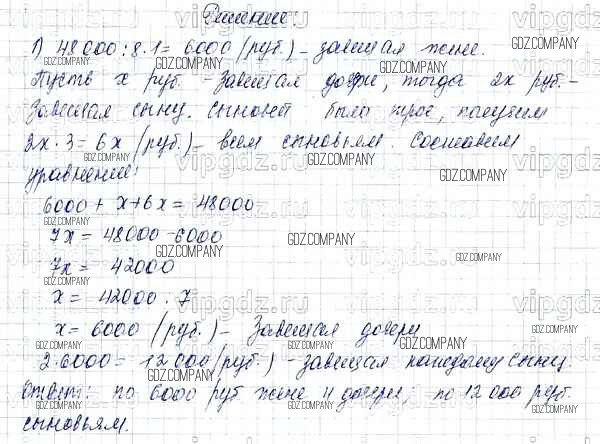 Решение:
1) 48 000 : 8 · 1 = 6000 (руб.) – завещал жене.
Пусть x руб. – завещал дочери, тогда 2x руб. –
завещал сыну. Сыновей было трое, получим
2x · 3 = 6x (руб.) – всем сыновьям. Составим
уравнение:
6000 + x + 6x = 48000
7x = 48000 - 6000
7x = 42000
x = 42000 : 7
x = 6000 (руб.) – Завещал дочери
2 · 6000 = 12 000 (руб.) – завещал каждому сыну.
Ответ: по 6000 руб жене и дочери, по 12 000 руб.
сыновьям.